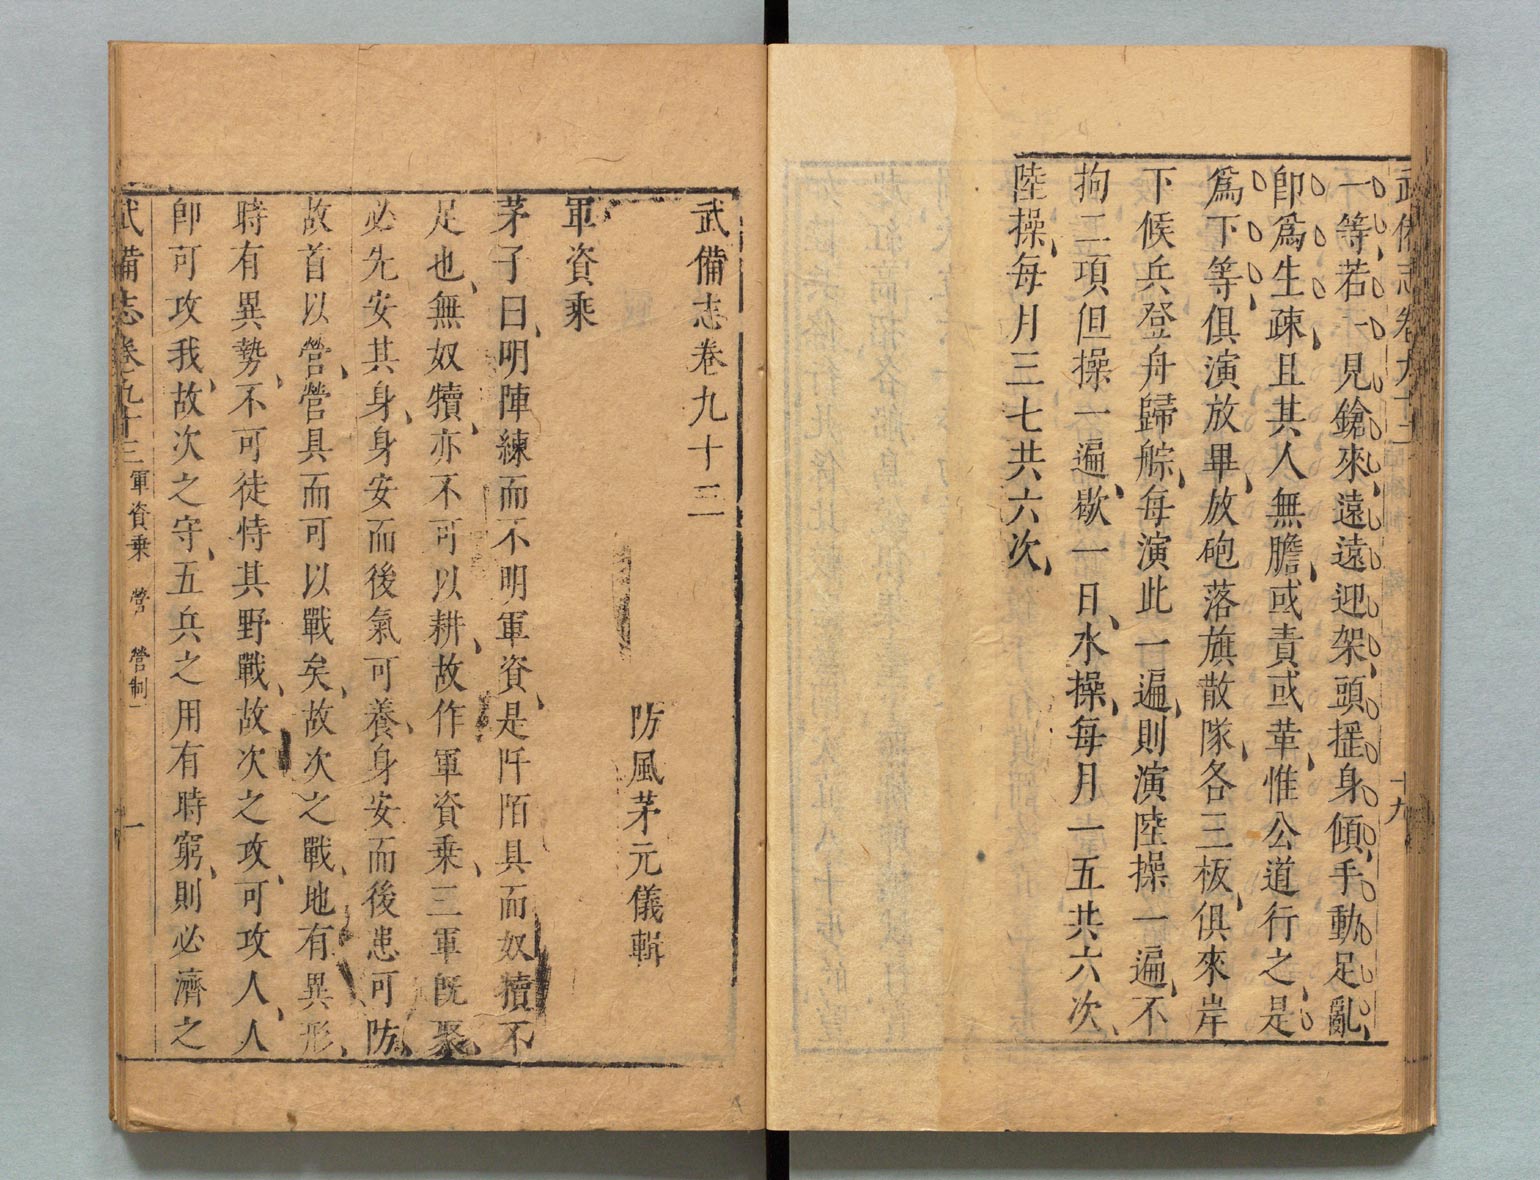 武備志卷九十二
十九
一等若一見鎗來遠遠迎架頭摇身傾手動足亂
卽爲生疎且其人無膽或責或革惟公道行之是
爲下等俱演放畢放砲落旗散隊各三板俱來岸
下候兵登舟歸䑸每演此一遍則演陸操一遍不
拘二項但操一遍歇一日水操每月一五共六次
陸操每月三七共六次
武備志卷九十三
防風茅元儀輯
軍資乘
茅子曰明陣練而不明軍資是阡陌具而奴犢不
足也無奴犢亦不可以耕故作軍資乘三軍旣聚
必先安其身身安而後氣可養身安而後患可防
故首以營營具而可以戰矣故次之戰地有異形
時有異勢不可徒恃其野戰故次之攻可攻人人
卽可攻我故次之守五兵之用有時窮則必濟之
武備志卷九十三 軍資乘 營 營制一 一